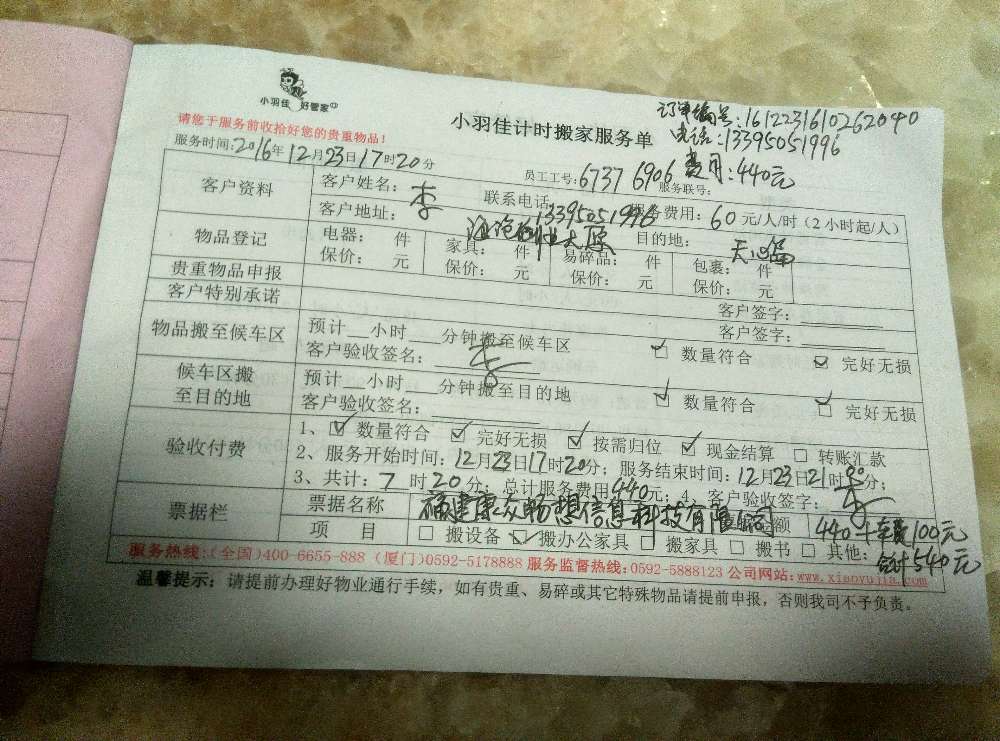 小羽佳 好管家
订单编号:1612231610262040
请您于服务前收拾好您的贵重物品!
小羽佳计时搬家服务单
电话:13395051996
服务时间:2016年12月23日17时20分
员工工号:6737 6906 服务联号:
费用:440元
客户资料 客户姓名:李 联系电话 13395051996 服务费用:60元/人/时(2小时起/人)
客户地址: 目的地:
物品登记 电器: 件 家具: 件 易碎品: 件 包裹: 件
保价: 元 保价: 元 保价: 元 保价: 元
贵重物品申报 客户签字:
客户特别承诺 客户签字:
物品搬至候车区 预计__小时__分钟搬至候车区 ☑ 数量符合 ☑ 完好无损
客户验收签名:李
候车区搬至目的地 预计__小时__分钟搬至目的地 ☑ 数量符合 ☑ 完好无损
客户验收签名:
验收付费 1、☑ 数量符合 ☑ 完好无损 ☑ 按需归位 ☑ 现金结算 □ 转账汇款
2、服务开始时间:12月23日17时20分;服务结束时间:12月23日21时分;
3、共计:7时20分;总计服务费用440元;4、客户验收签字:李
票据栏 票据名称 福建康众畅想信息科技有限公司 金额 440+车费100元
项目 □ 搬设备 ☑ 搬办公家具 □ 搬家具 □ 搬书 □ 其他: 合计540元
服务热线:(全国)400-6655-888 (厦门)0592-5178888 服务监督热线:0592-5888123 公司网站:www.xiaoyujia.com
温馨提示:请提前办理好物业通行手续,如有贵重、易碎或其它特殊物品请提前申报,否则我司不予负责。